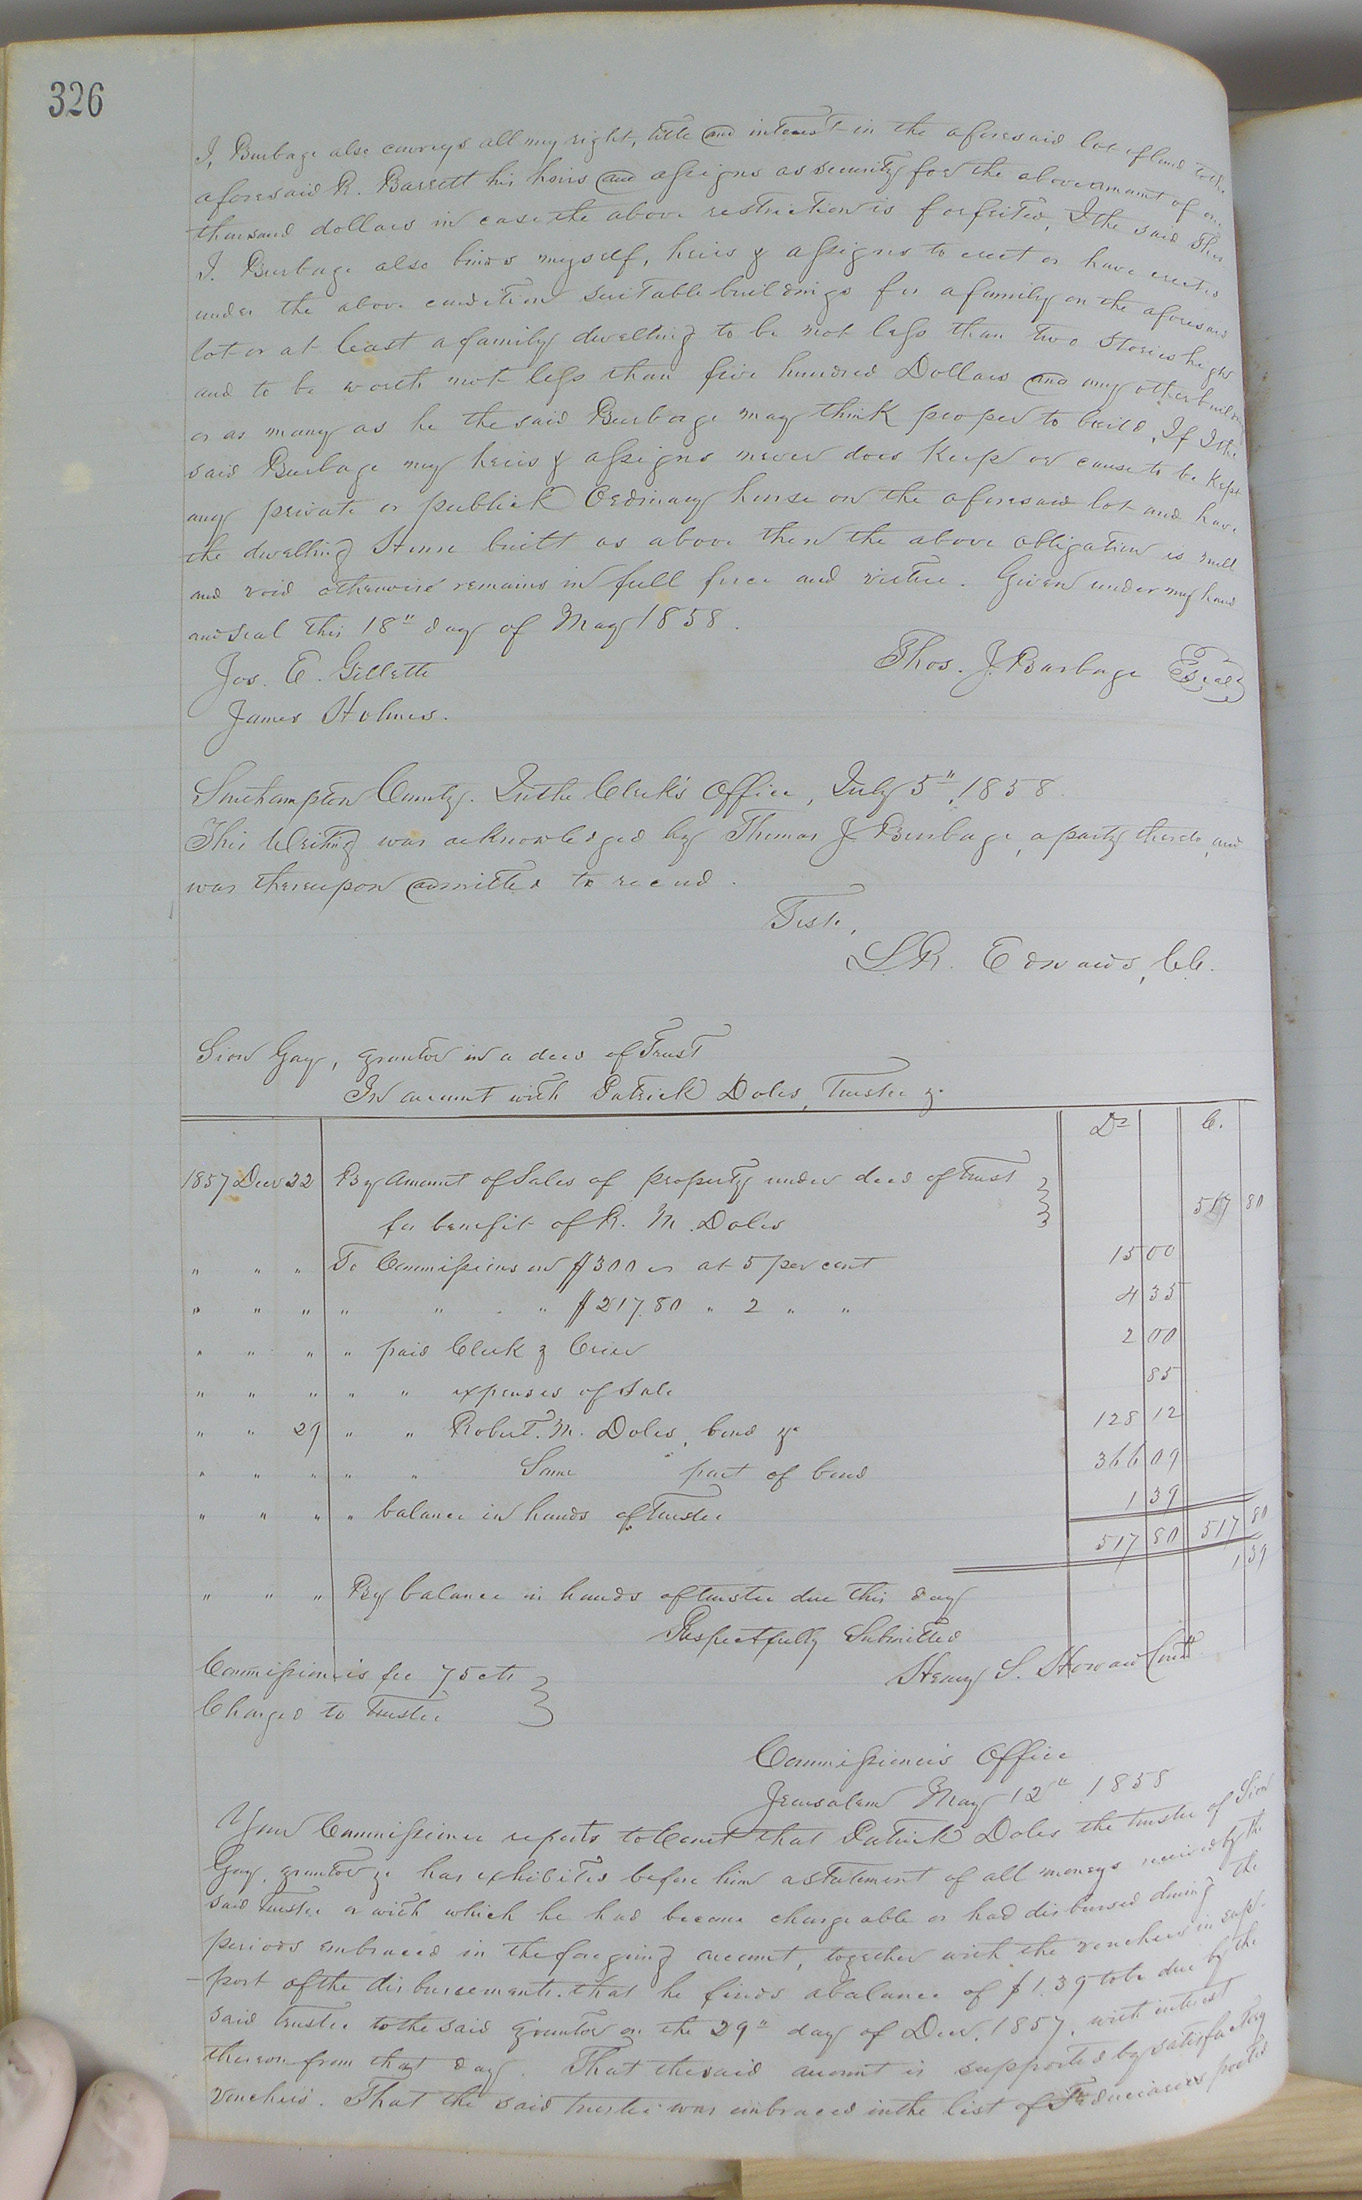 326
I, Burbage also conveys all my right, title and interest in the aforesaid lot of land to the
aforesaid R. Barrett his heirs and assigns as security for the above amount of one
thousand dollars in case the above restriction is forfeited, I the said Thos
J. Burbage also binds myself, heirs & assigns to erect or have erected
under the above condition suitable buildings for a family on the aforesaid
lot or at least a family dwelling to be not less than two stories high
and to be worth not less than five hundred Dollars and any other building
or as many as he the said Burbage may think proper to build. If I the
said Burbage my heirs & assigns never does keep or cause to be kept
any private or publick Ordinary house on the aforesaid lot and have
the dwelling House built as above then the above obligation is null
and void otherwise remains in full force and virtue. Given under my hand
and seal this 18" day of May 1858.
Jos. E. Gillette Thos. J. Burbage Seal
James Holmes.
Southampton County. In the Clerk's Office, July 5", 1858.
This Writing was acknowledged by Thomas J Burbage, a party thereto, and
was thereupon admitted to record.
Teste,
L.R. Edwards, C.C.
Sion Gay, grantor in a deed of Trust
In account with Patrick Doles, Trustee &c
Dr C.
1857 Decr 22 By Amount of Sales of property under deed of trust
for benefit of R. M. Doles 517 80
" " " To Commissions on $300 is at 5 per cent 15 00
" " " " " " $217.80 " 2 " " 4 35
" " " " paid Clerk & Crier 2 00
" " " " " expenses of sale 85
" " 29 " " Robert. M. Doles, bond &c 128 12
" " " " " Same part of bond 366 09
" " " " balance in hands of Trustee 1 39
517 80 517 80
1 39
" " " By balance in hands of trustee due this day
Respectfully Submitted
Commissioner's fee 75 cts Henry S. Howard Comr
Charged to Trustee
Commissioner's Office
Jerusalem May 12" 1858
Your Commissioner reports to Court that Patrick Doles the trustee of Sion
Gay, grantor &c has exhibited before him a statement of all moneys received by the
said trustee or with which he had become chargeable or had disbursed during the
periods embraced in the foregoing account, together with the vouchers in sup-
-port of the disbursements. that he finds a balance of $1.39 to be due by the
said trustee to the said grantor on the 29" day of Decr. 1857, with interest
thereon from that day. That the said account is supported by satisfactory
vouchers. That the said trustee was embraced in the list of Fiduciaries posted